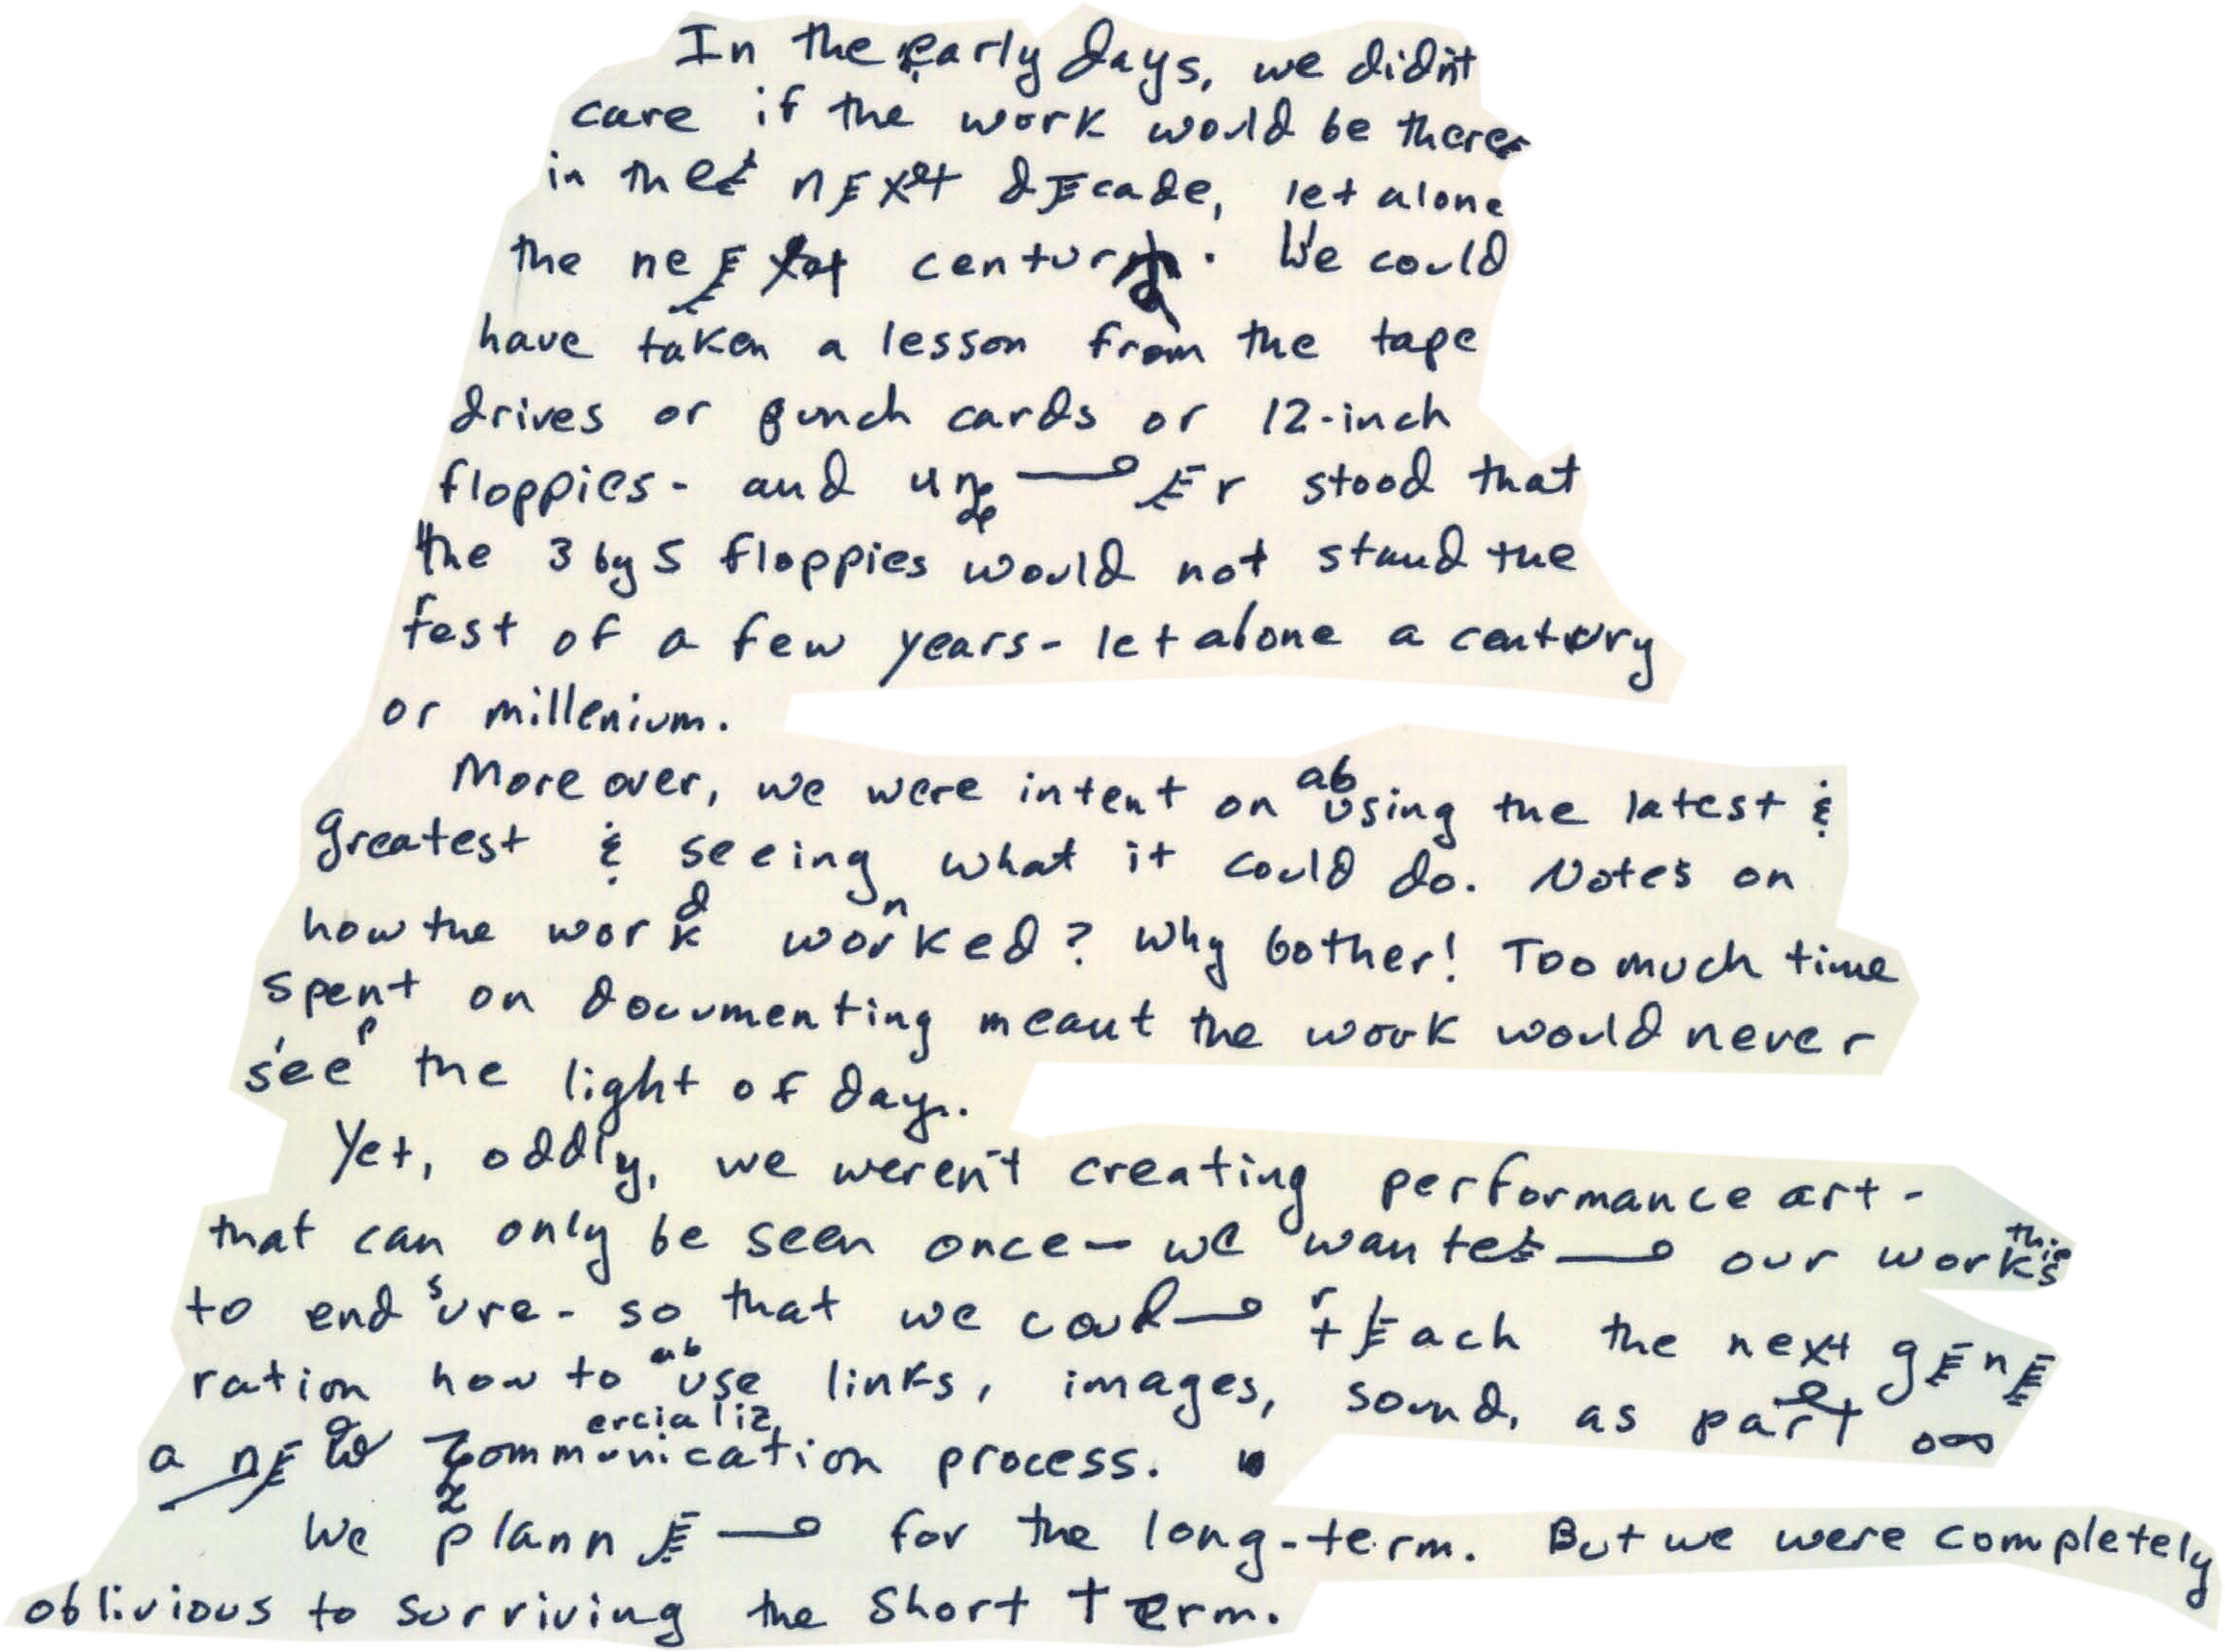 In the early days, we didn't
care if the work would be there
in the next decade, let alone
the next century. We could
have taken a lesson from the tape
drives or punch cards or 12-inch
floppies - and under stood that
the 3 by 5 floppies would not stand the
test of a few years - let alone a century
or millenium.
More over, we were intent on abusing the latest &
greatest & seeing what it could do. Notes on
how the work worked? Why bother! Too much time
spent on documenting meant the work would never
seep the light of day.
Yet, oddly, we weren't creating performance art -
that can only be seen once - we wanted our works this
to endsure - so that we could teach the next gene
ration how to abuse links, images, sound, as part
a new communication ercializ process.
We planned for the long-term. But we were completely
oblivious to surviving the short term.